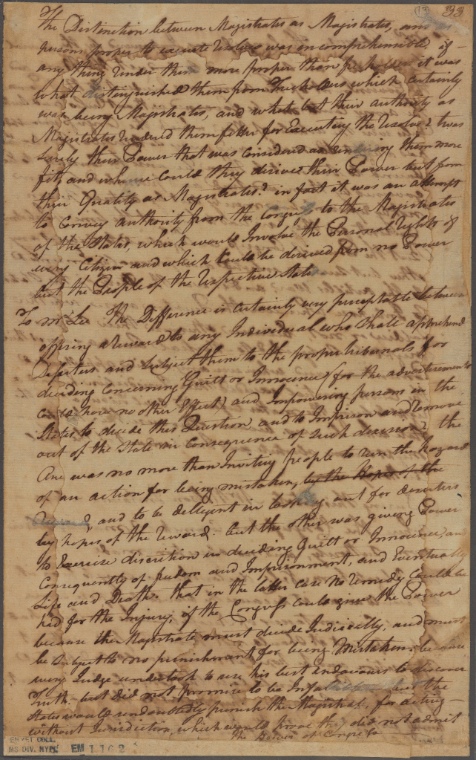 33
The Distinction between Magistrates as Magistrates, and
persons proper to execute Duties was incomprehensible, if
any thing render them more proper than it was
what distinguished them from which certainly
was being Magistrates, and what but their authority as
Magistrates them fitter for Executing the twas
surely their Power that was considered as them more
fit, and whence could they derive this Power but from
their Quality as Magistrates? in fact it was an attempt
to Convey authority from the Congress to the Magistrates
of the States, which would Involve the Personal Rights of
every Citizen and which could be derived from no Power
but the People of the respective States
To Mr Lee The Difference is certainly very perceptable between
offering a reward to any Individual who shall apprehend
Deserters and Subject them to the proper tribunals for
deciding concerning Guilt or Innocence, for the advertisements
could have no other Effect, and Impowering persons in the
States to decide this Question and to Imprison and remove
out of the State in Consequence of such decision, the
One was no more than Inviting people to run the Hazard
of an action for being mistaken, by the Hopes of the
and to be deligent in looking out for deserters
by hopes of the reward. but the other was giving Power
to Exercise discretion in deciding Guilt or Innocence, and
Consequently of freedom and Imprisonment, and Eventually
Life and Death, that in the latter case No remedy could be
had for the Injury, if the Congress could give the Power
because the Magistrate must decide Judicially, and must
be Subject to no punishment for being Mistaken, because
every Judge undertook to use his best endeavour to discover
truth, but did not promise to be Infallible the
States would undoubtedly punish the Magistrate for acting
without Jurisdiction which would prove they did not admit
the Power of Congress
EMMET COLL.
MS. DIV. NYPL EM 1162